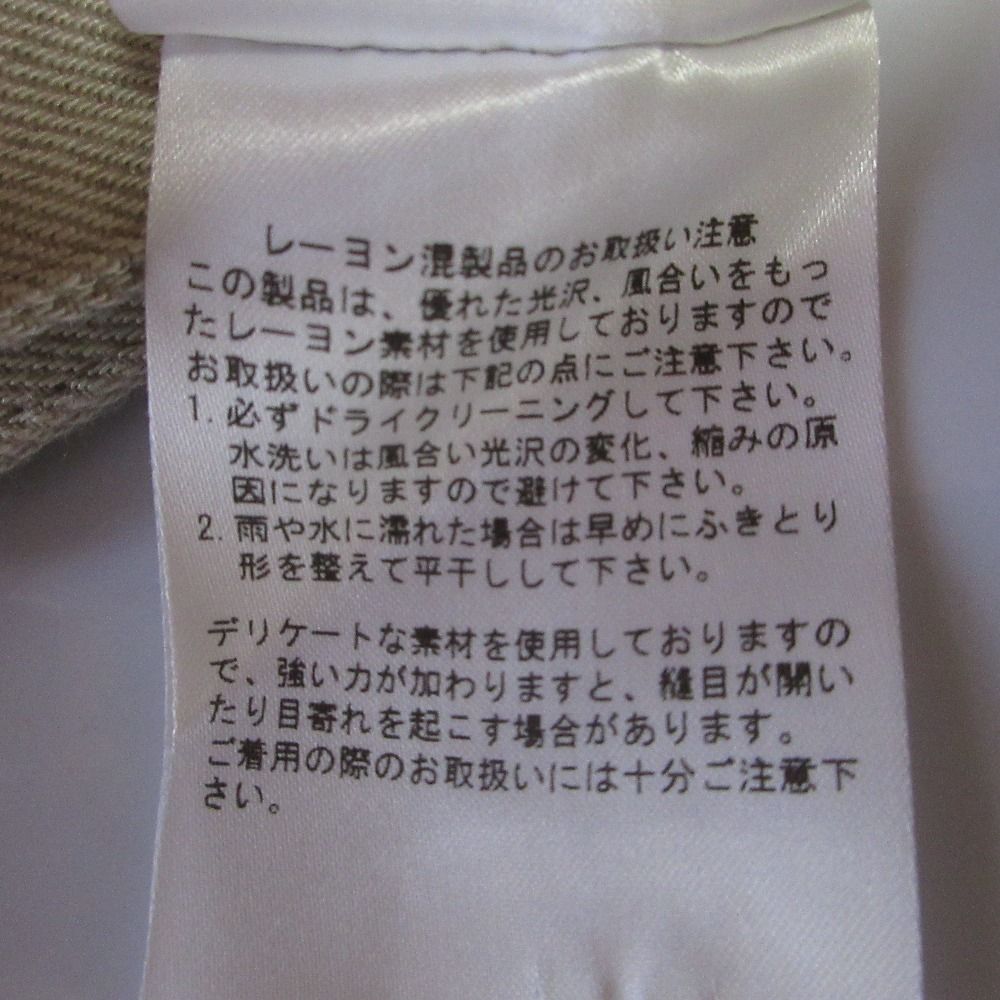 レーヨン混製品のお取扱い注意
この製品は、優れた光沢、風合いをもっ
たレーヨン素材を使用しておりますので
お取扱いの際は下記の点にご注意下さい。
1. 必ずドライクリーニングして下さい。
水洗いは風合い光沢の変化、縮みの原
因になりますので避けて下さい。
2. 雨や水に濡れた場合は早めにふきとり
形を整えて平干しして下さい。
デリケートな素材を使用しておりますの
で、強い力が加わりますと、縫目が開い
たり目寄れを起こす場合があります。
ご着用の際のお取扱いには十分ご注意下
さい。